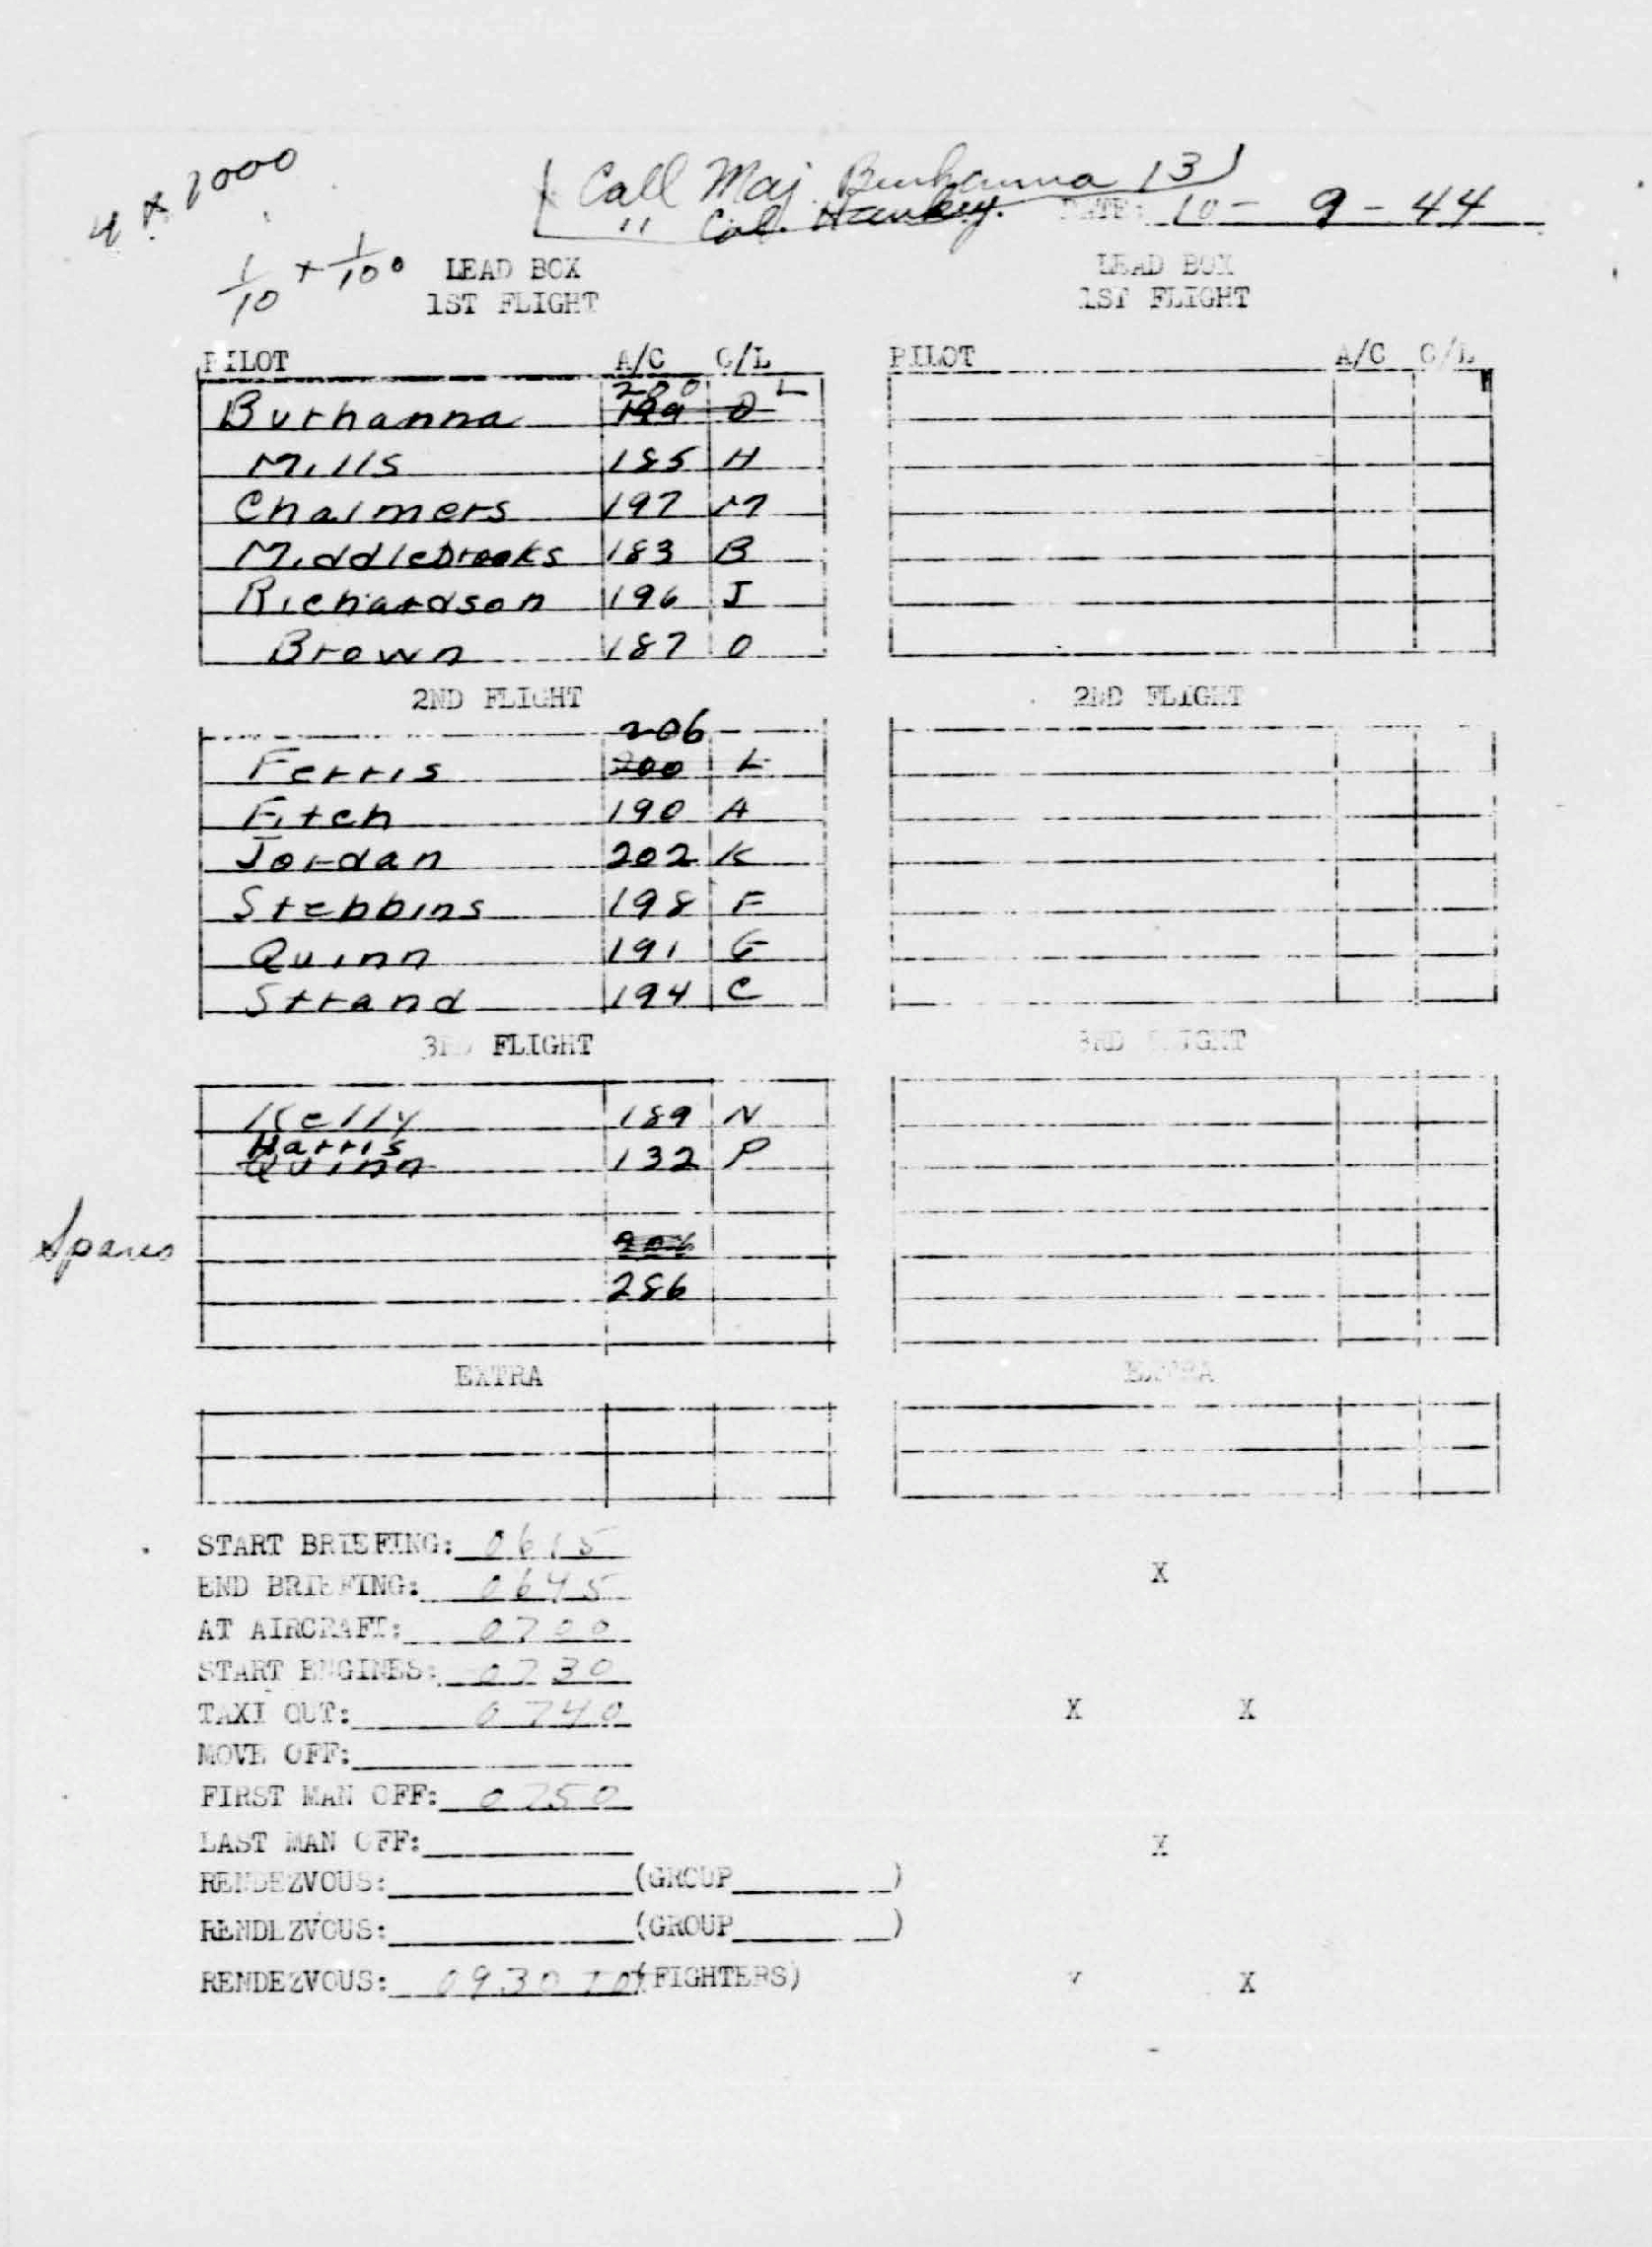 4 x 1000
Call Maj. Burhanna 131
" Col. Hankey.
DATE: 10 - 9 - 44
1/10 + 1/100
LEAD BOX LEAD BOX
1ST FLIGHT 1ST FLIGHT
PILOT A/C C/L PILOT A/C C/L
200 L
Burhanna 199 O
Mills 185 H
Chalmers 197 M
Middlebrooks 183 B
Richardson 196 J
Brown 187 O
2ND FLIGHT 2ND FLIGHT
206
Ferris 200 L
Fitch 190 A
Jordan 202 K
Stebbins 198 F
Quinn 191 G
Strand 194 C
3RD FLIGHT 3RD FLIGHT
Kelly 189 N
Harris
Quinn 132 P
Spares 206
286
EXTRA EXTRA
START BRIEFING: 0615
END BRIEFING: 0645 X
AT AIRCRAFT: 0700
START ENGINES: 0730
TAXI OUT: 0740 X X
MOVE OFF:
FIRST MAN OFF: 0750
LAST MAN OFF: X
RENDEZVOUS: (GROUP )
RENDEZVOUS: (GROUP )
RENDEZVOUS: 0930 (FIGHTERS) X